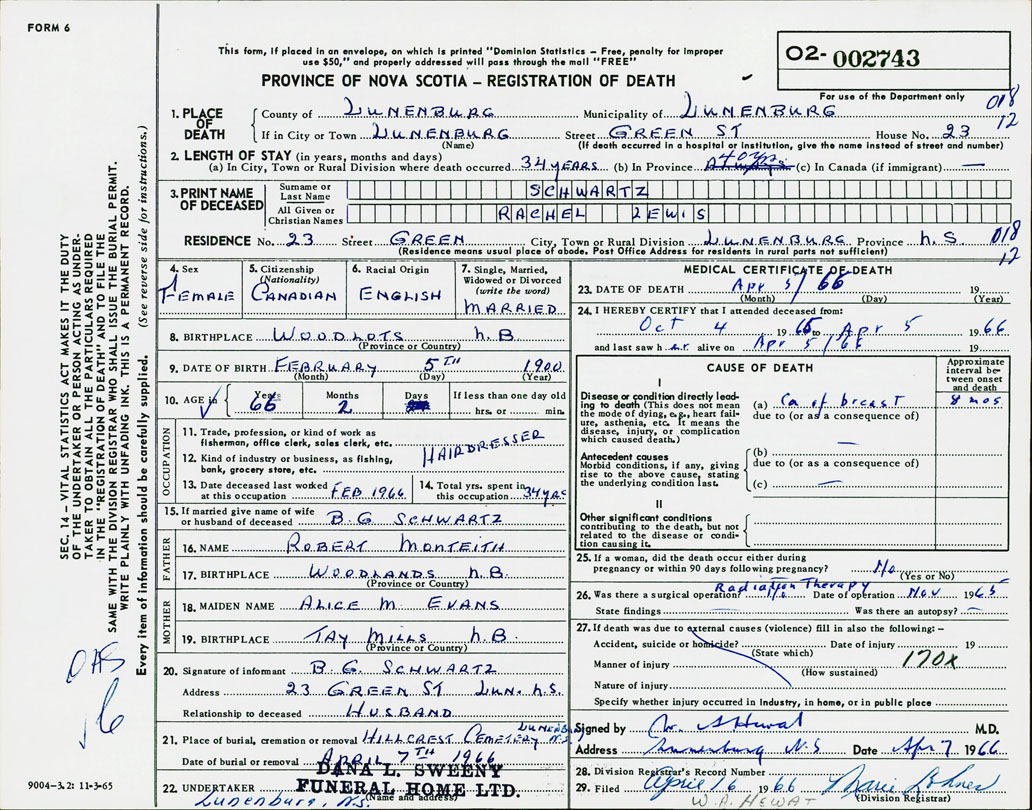 FORM 6
This form, if placed in an envelope, on which is printed "Dominion Statistics – Free, penalty for improper
use $50," and properly addressed will pass through the mail "FREE"
PROVINCE OF NOVA SCOTIA – REGISTRATION OF DEATH
O2- 002743
For use of the Department only
018
12
1. PLACE OF DEATH
County of LUNENBURG Municipality of LUNENBURG
If in City or Town LUNENBURG Street GREEN ST House No. 23
(Name) (If death occurred in a hospital or institution, give the name instead of street and number)
2. LENGTH OF STAY (in years, months and days)
(a) In City, Town or Rural Division where death occurred 34 YEARS (b) In Province 40 yrs (c) In Canada (if immigrant) —
3. PRINT NAME OF DECEASED
Surname or Last Name SCHWARTZ
All Given or Christian Names RACHEL LEWIS
RESIDENCE No. 23 Street GREEN City, Town or Rural Division LUNENBURG Province N.S.
018
12
(Residence means usual place of abode. Post Office Address for residents in rural parts not sufficient)
4. Sex
FEMALE
5. Citizenship (Nationality)
CANADIAN
6. Racial Origin
ENGLISH
7. Single, Married, Widowed or Divorced (write the word)
MARRIED
8. BIRTHPLACE WOODLOTS N.B
(Province or Country)
9. DATE OF BIRTH FEBRUARY 5TH 1900
(Month) (Day) (Year)
10. AGE in Years 66 Months 2 Days If less than one day old hrs. or min.
OCCUPATION
11. Trade, profession, or kind of work as fisherman, office clerk, sales clerk, etc.
12. Kind of industry or business, as fishing, bank, grocery store, etc.
HAIRDRESSER
13. Date deceased last worked at this occupation FEB 1966
14. Total yrs. spent in this occupation 34 YRS
15. If married give name of wife or husband of deceased B. G SCHWARTZ
FATHER
16. NAME ROBERT MONTEITH
17. BIRTHPLACE WOODLANDS N.B.
(Province or Country)
MOTHER
18. MAIDEN NAME ALICE M. EVANS
19. BIRTHPLACE TAY MILLS N.B
(Province or Country)
20. Signature of informant B. G. SCHWARTZ
Address 23 GREEN ST LUN. N.S.
Relationship to deceased HUSBAND
21. Place of burial, cremation or removal HILLCREST CEMETERY LUNENBURG N.S.
Date of burial or removal APRIL 7TH 1966
22. UNDERTAKER DANA L. SWEENY
FUNERAL HOME LTD.
(Name and address)
Lunenburg, N.S.
MEDICAL CERTIFICATE OF DEATH
23. DATE OF DEATH Apr 5/66 19
(Month) (Day) (Year)
24. I HEREBY CERTIFY that I attended deceased from:
Oct 4 1965 to Apr 5 1966
and last saw her alive on Apr 5/66 19
CAUSE OF DEATH
Approximate interval between onset and death
I
Disease or condition directly leading to death (This does not mean the mode of dying, e.g., heart failure, asthenia, etc. It means the disease, injury, or complication which caused death.)
(a) Ca of breast 8 mos
due to (or as a consequence of)
—
Antecedent causes
Morbid conditions, if any, giving rise to the above cause, stating the underlying condition last.
(b)
due to (or as a consequence of)
(c) —
II
Other significant conditions contributing to the death, but not related to the disease or condition causing it.
25. If a woman, did the death occur either during pregnancy or within 90 days following pregnancy? No
(Yes or No)
Radiation Therapy
26. Was there a surgical operation? Date of operation Nov 1965
State findings Was there an autopsy? —
27. If death was due to external causes (violence) fill in also the following: –
Accident, suicide or homicide? Date of injury 19
(State which)
Manner of injury 170X
(How sustained)
Nature of injury
Specify whether injury occurred in Industry, in home, or in public place
Signed by W. A Hewat M.D.
Address Lunenburg N.S Date Apr 7 1966
28. Division Registrar's Record Number
29. Filed April 16 1966
W. A. HEWAT (Division Registrar)
SEC. 14 – VITAL STATISTICS ACT MAKES IT THE DUTY
OF THE UNDERTAKER OR PERSON ACTING AS UNDERTAKER
TO OBTAIN ALL THE PARTICULARS REQUIRED
IN THE "REGISTRATION OF DEATH" AND TO FILE THE
SAME WITH THE DIVISION REGISTRAR WHO SHALL ISSUE THE BURIAL PERMIT.
WRITE PLAINLY WITH UNFADING INK. THIS IS A PERMANENT RECORD.
Every item of information should be carefully supplied. (See reverse side for instructions.)
OAS
6
9004-3.2: 11-3-65